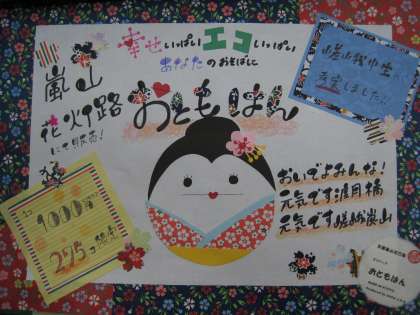 幸せいっぱいエコいっぱい
あなたのおそばに
おともはん
嵐山
花灯路
にて販売!
嵯峨中生が
考案しました!
1コ
1000円
275コ限定
おいでよみんな!
元気です渡月橋
元気です嵯峨嵐山
おともはん